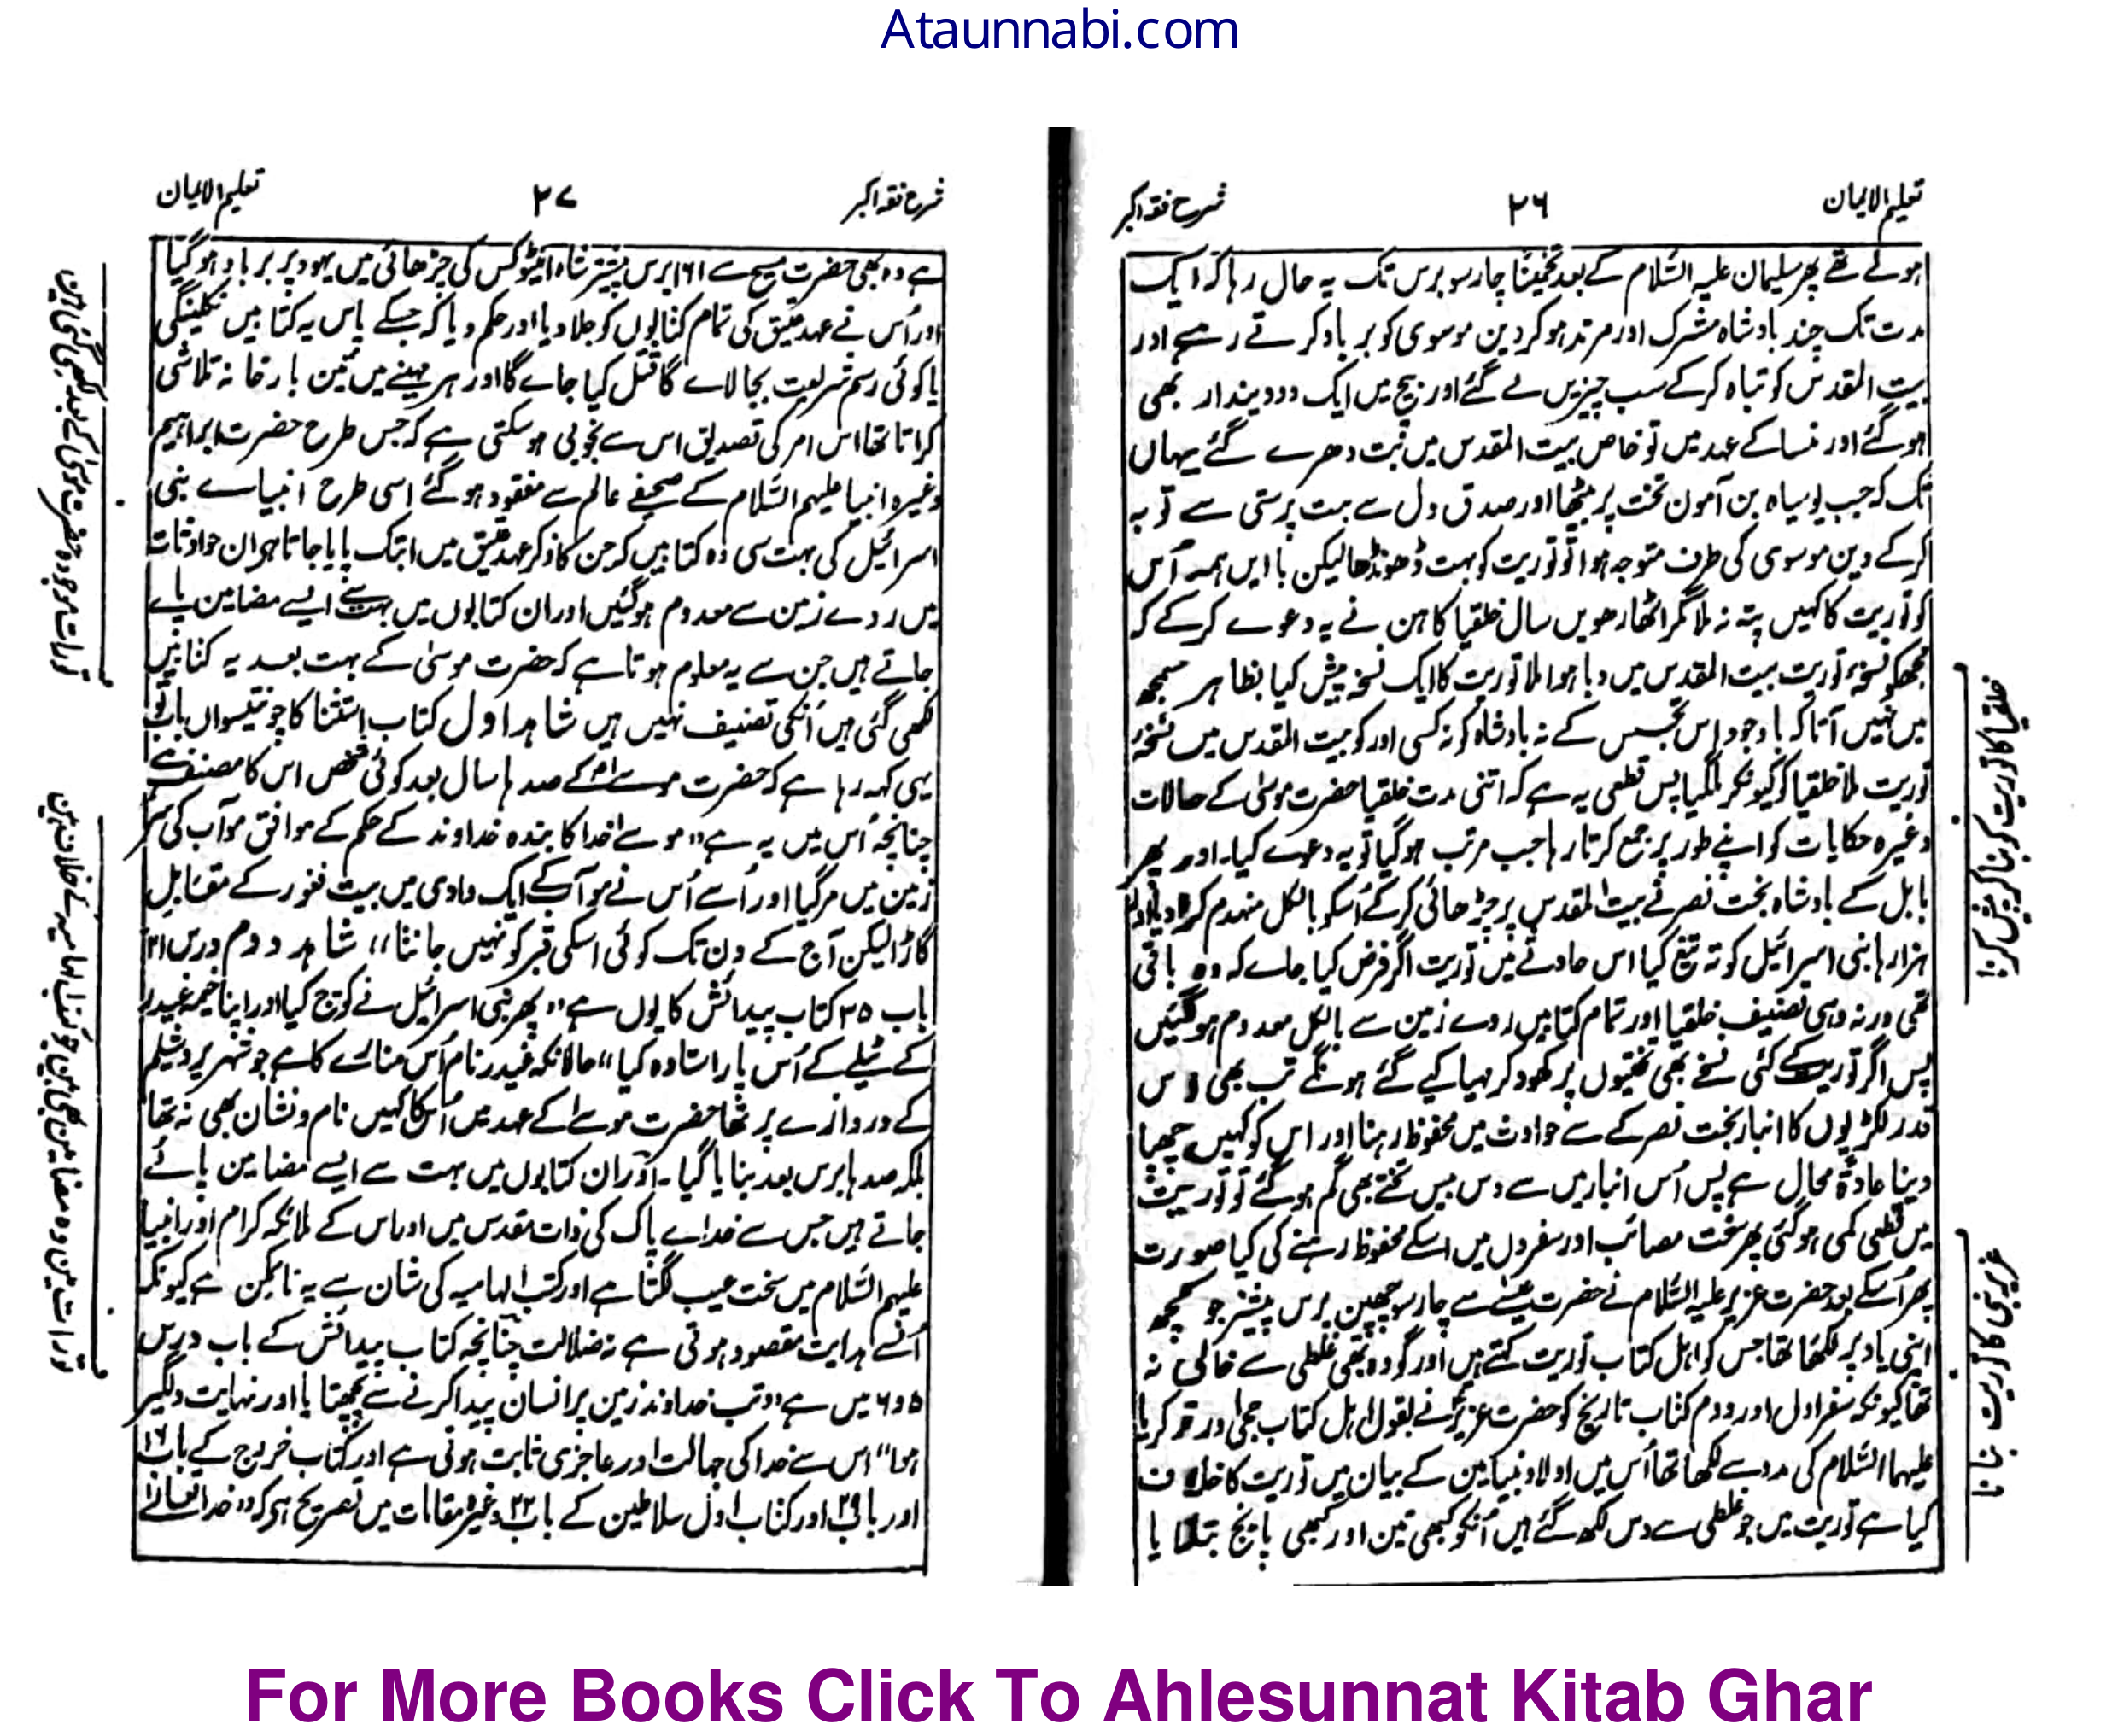 Ataunnabi.com
تعلیم الایمان
۲۶
شرح فقہ اکبر
ہوئے تھے پھر سلیمان علیہ السّلام کے بعد تخمینًا چار سو برس تک یہ حال رہا کہ ایک
مدت تک چند بادشاہ مشرک اور مرتد ہو کر دین موسوی کو برباد کرتے رہے اور
بیت المقدس کو تباہ کر کے سب چیزیں لے گئے اور بیچ میں ایک دو دیندار بھی
ہو گئے اور منسا کے عہد میں تو خاص بیت المقدس میں بت دھرے گئے یہاں
تک کہ جب یوسیاہ بن آمون تخت پر بیٹھا اور صدق دل سے بت پرستی سے توبہ
کر کے دین موسوی کی طرف متوجہ ہوا تو توریت کو بہت ڈھونڈھا لیکن با ایں ہمہ اُس
کو توریت کا کہیں پتہ نہ ملا مگر اٹھارھویں سال خلقیا کاہن نے یہ دعوے کر کے کہ
مجھکو نسخۂ توریت بیت المقدس میں دبا ہوا ملا توریت کا ایک نسخہ پیش کیا بظاہر سمجھ
میں نہیں آتا کہ باوجود اس تجسس کے نہ بادشاہ کو نہ کسی اور کو بیت المقدس میں نسخۂ
توریت ملا خلقیا کو کیونکر ملگیا پس قطعی یہ ہے کہ اتنی مدت خلقیا حضرت موسیٰ کے حالات
وغیرہ حکایات کو اپنے طور پر جمع کرتا رہا جب مرتب ہو گیا تو یہ دعوے کیا۔ اور پھر
بابل کے بادشاہ بخت نصر نے بیت المقدس پر چڑھائی کر کے اُسکو بالکل منہدم کر دیا اور
ہزارہا بنی اسرائیل کو تہ تیغ کیا اس حادثے میں توریت اگر فرض کیا جاے کہ وہ باقی
تھی ورنہ وہی تصنیف خلقیا اور تمام کتابیں روے زمین سے بالکل معدوم ہو گئیں
پس اگر توریت کے کئی نسخے بھی تختیوں پر کھود کر مہیا کیے گئے ہونگے تب بھی اس
قدر لکڑیوں کا انبار بخت نصر کے سے حوادث میں محفوظ رہنا اور اس کو کہیں چھپا
دینا عادۃً محال ہے پس اُس انبار میں سے دس بیس تختے بھی گم ہو گئے تو توریت
میں قطعی کمی ہو گئی پھر سخت مصائب اور سفروں میں اسکے محفوظ رہنے کی کیا صورت
پھر اُسکے بعد حضرت عزیر علیہ السّلام نے حضرت عیسےٰ سے چار سو چھپن برس پیشتر جو کچھ
اپنی یاد پر لکھا تھا جس کو اہل کتاب توریت کہتے ہیں اور گو وہ بھی غلطی سے خالی نہ
تھا کیونکہ سفر اول اور دوم کتاب تاریخ کو حضرت عزیرؑ نے بقول اہل کتاب حجی اور زکریا
علیہما السّلام کی مدد سے لکھا تھا اُس میں اولاد بنیامین کے بیان میں توریت کا خلاف
کیا ہے توریت میں جو غلطی سے دس لکھ گئے ہیں اُنکو کبھی تین اور کبھی پانچ بتلایا
خلقیا کا توریت کو بنا کر پیش کرنا
عزیر نبی کا توریت بنانا
شرح فقہ اکبر
۲۷
تعلیم الایمان
ہے وہ بھی حضرت مسیح سے ۱۶۱ برس پیشتر شاہ انیٹوکس کی چڑھائی میں یہود پر برباد ہو گیا
اور اُس نے عہد عتیق کی تمام کتابوں کو جلا دیا اور حکم دیا کہ جسکے پاس یہ کتابیں نکلینگی
یا کوئی رسم شریعت بجا لاے گا قتل کیا جاے گا اور ہر مہینے میں تین بار خانہ تلاشی
کراتا تھا اس امر کی تصدیق اس سے بخوبی ہو سکتی ہے کہ جس طرح حضرت ابراہیم
وغیرہ انبیا علیہم السّلام کے صحیفے عالم سے مفقود ہو گئے اسی طرح انبیاے بنی
اسرائیل کی بہت سی وہ کتابیں کہ جن کا ذکر عہد عتیق میں ابتک پایا جاتا ہی ان حوادثات
میں روے زمین سے معدوم ہو گئیں اور ان کتابوں میں بہت سے ایسے مضامین پاے
جاتے ہیں جن سے یہ معلوم ہوتا ہے کہ حضرت موسیٰ کے بہت بعد یہ کتابیں
لکھی گئی ہیں اُنکی تصنیف نہیں ہیں شاہد اول کتاب استثنا کا چونتیسواں باب تو
یہی کہہ رہا ہے کہ حضرت موسےٰ کے صدہا سال بعد کوئی شخص اس کا مصنف ہے
چنانچہ اُس میں یہ ہے "موسےٰ خدا کا بندہ خداوند کے حکم کے موافق موآب کی سر
زمین میں مر گیا اور اُسے اُس نے موآب کے ایک وادی میں بیت فغور کے مقابل
گاڑا لیکن آج کے دن تک کوئی اسکی قبر کو نہیں جانتا" شاہد دوم درس ۲۱
باب ۳۵ کتاب پیدائش کا یوں ہے "پھر بنی اسرائیل نے کوچ کیا اور اپنا خیمہ غیدر
کے ٹیلے کے اُس پار استادہ کیا" حالانکہ غیدر نام اُس منارے کا ہے جو شہر یروشلم
کے دروازے پر تھا حضرت موسےٰ کے عہد میں اُسکا کہیں نام و نشان بھی نہ تھا
بلکہ صدہا برس بعد بنایا گیا۔ اور ان کتابوں میں بہت سے ایسے مضامین پائے
جاتے ہیں جس سے خداے پاک کی ذات مقدس میں اور اس کے ملائکہ کرام اور انبیا
علیہم السّلام میں سخت عیب لگتا ہے اور کتب الہامیہ کی شان سے یہ ناممکن ہے کیونکہ
اُنسے ہدایت مقصود ہوتی ہے نہ ضلالت چنانچہ کتاب پیدائش کے باب درس
۵ و ۶ میں ہے "تب خداوند زمین پر انسان پیدا کرنے سے پچھتایا اور نہایت دلگیر
ہوا" اس سے خدا کی جہالت اور عاجزی ثابت ہوتی ہے اور کتاب خروج کے باب ۱۶
اور باب ۲۹ اور کتاب اول سلاطین کے باب ۲۲ وغیرہ مقامات میں تصریح ہی کہ "خدا تعالےٰ
تورات موجودہ حضرت موسیٰ کے بعد لکھی گئی ہین
تورات مین وہ مضامین بھی ہین جو کتب الہامیہ کے خلاف ہین
For More Books Click To Ahlesunnat Kitab Ghar